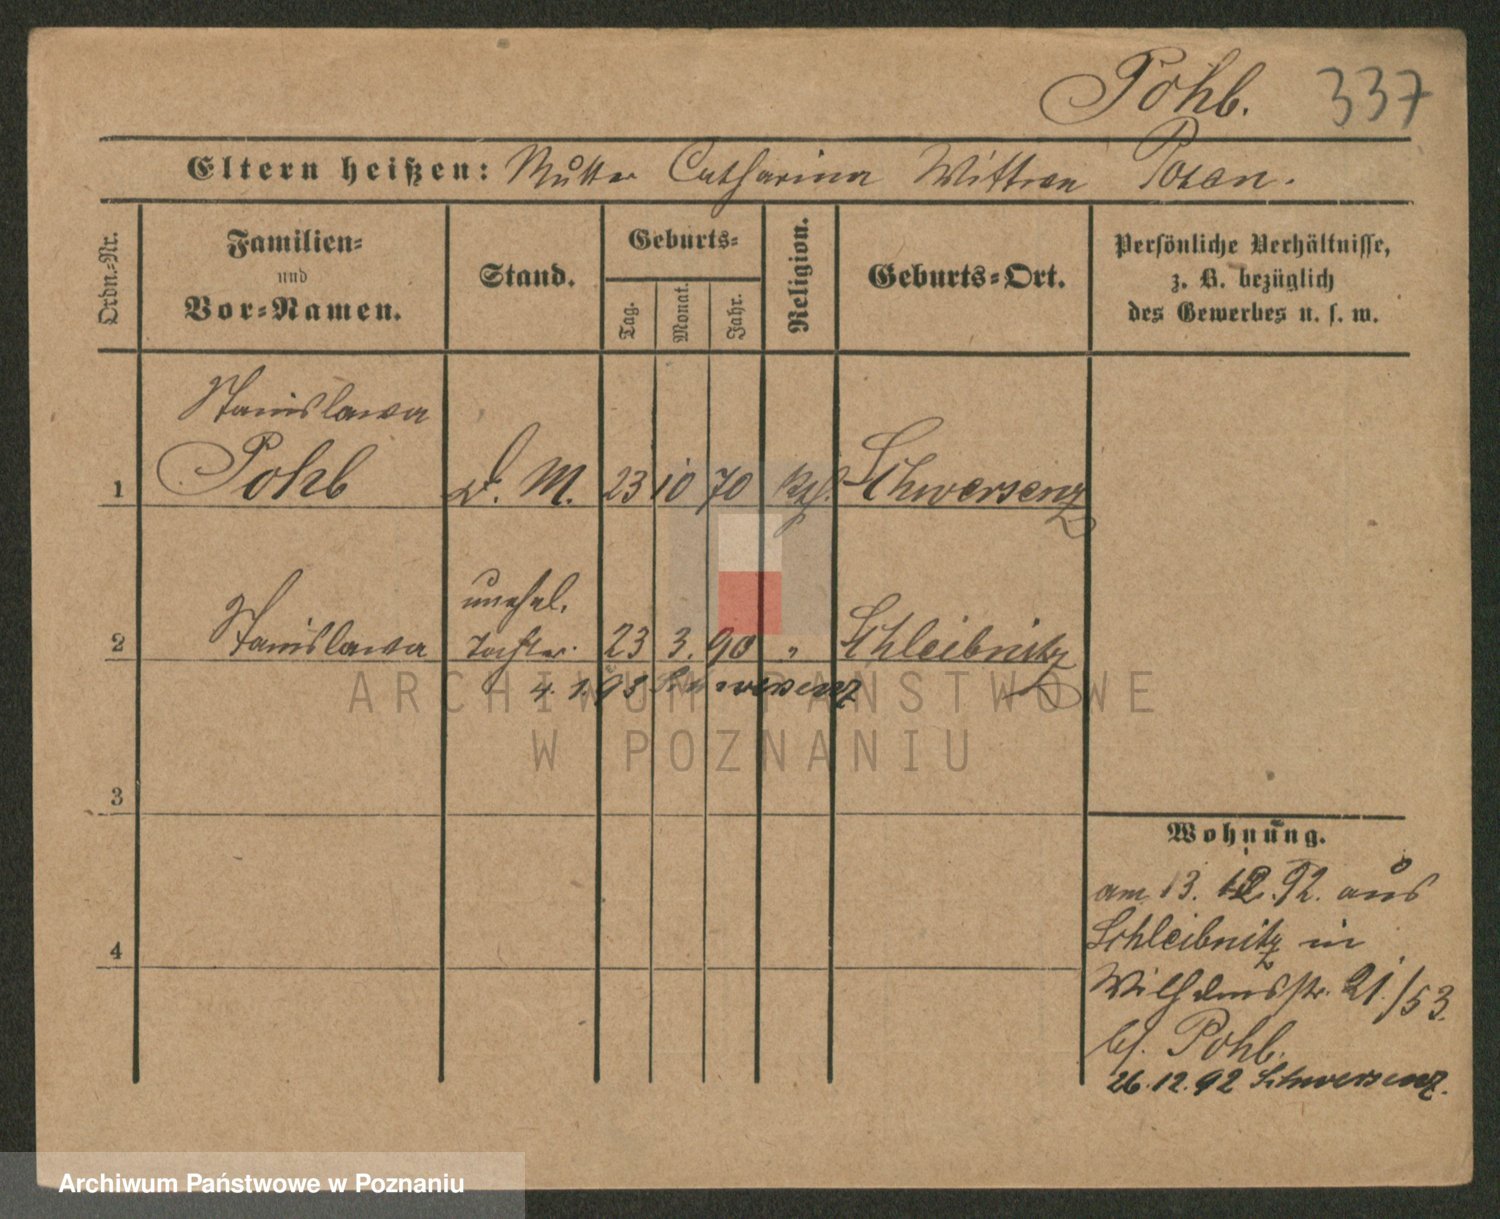 Pohb. 337
Eltern heißen: Mutter Catharina Wittwe Posen.
Ordn.-Nr.
Familien-
und
Vor-Namen.
Stand.
Geburts-
Tag.
Monat.
Jahr.
Religion.
Geburts-Ort.
Persönliche Verhältnisse,
z. B. bezüglich
des Gewerbes u. s. w.
Stanislawa
1 Pohb D. M. 23 10 70 Schwersenz
unehel.
2 Stanislawa Tochter. 23 3. 90 " Schleibnitz
4. 1. 93 Schwersenz
ARCHIWUM PAŃSTWOWE
W POZNANIU
3
4
Wohnung.
am 13. 12. 92. aus
Schleibnitz in
Wilhelmsstr. 21./53.
bei Pohb.
26. 12. 92 Schwersenz.
Archiwum Państwowe w Poznaniu